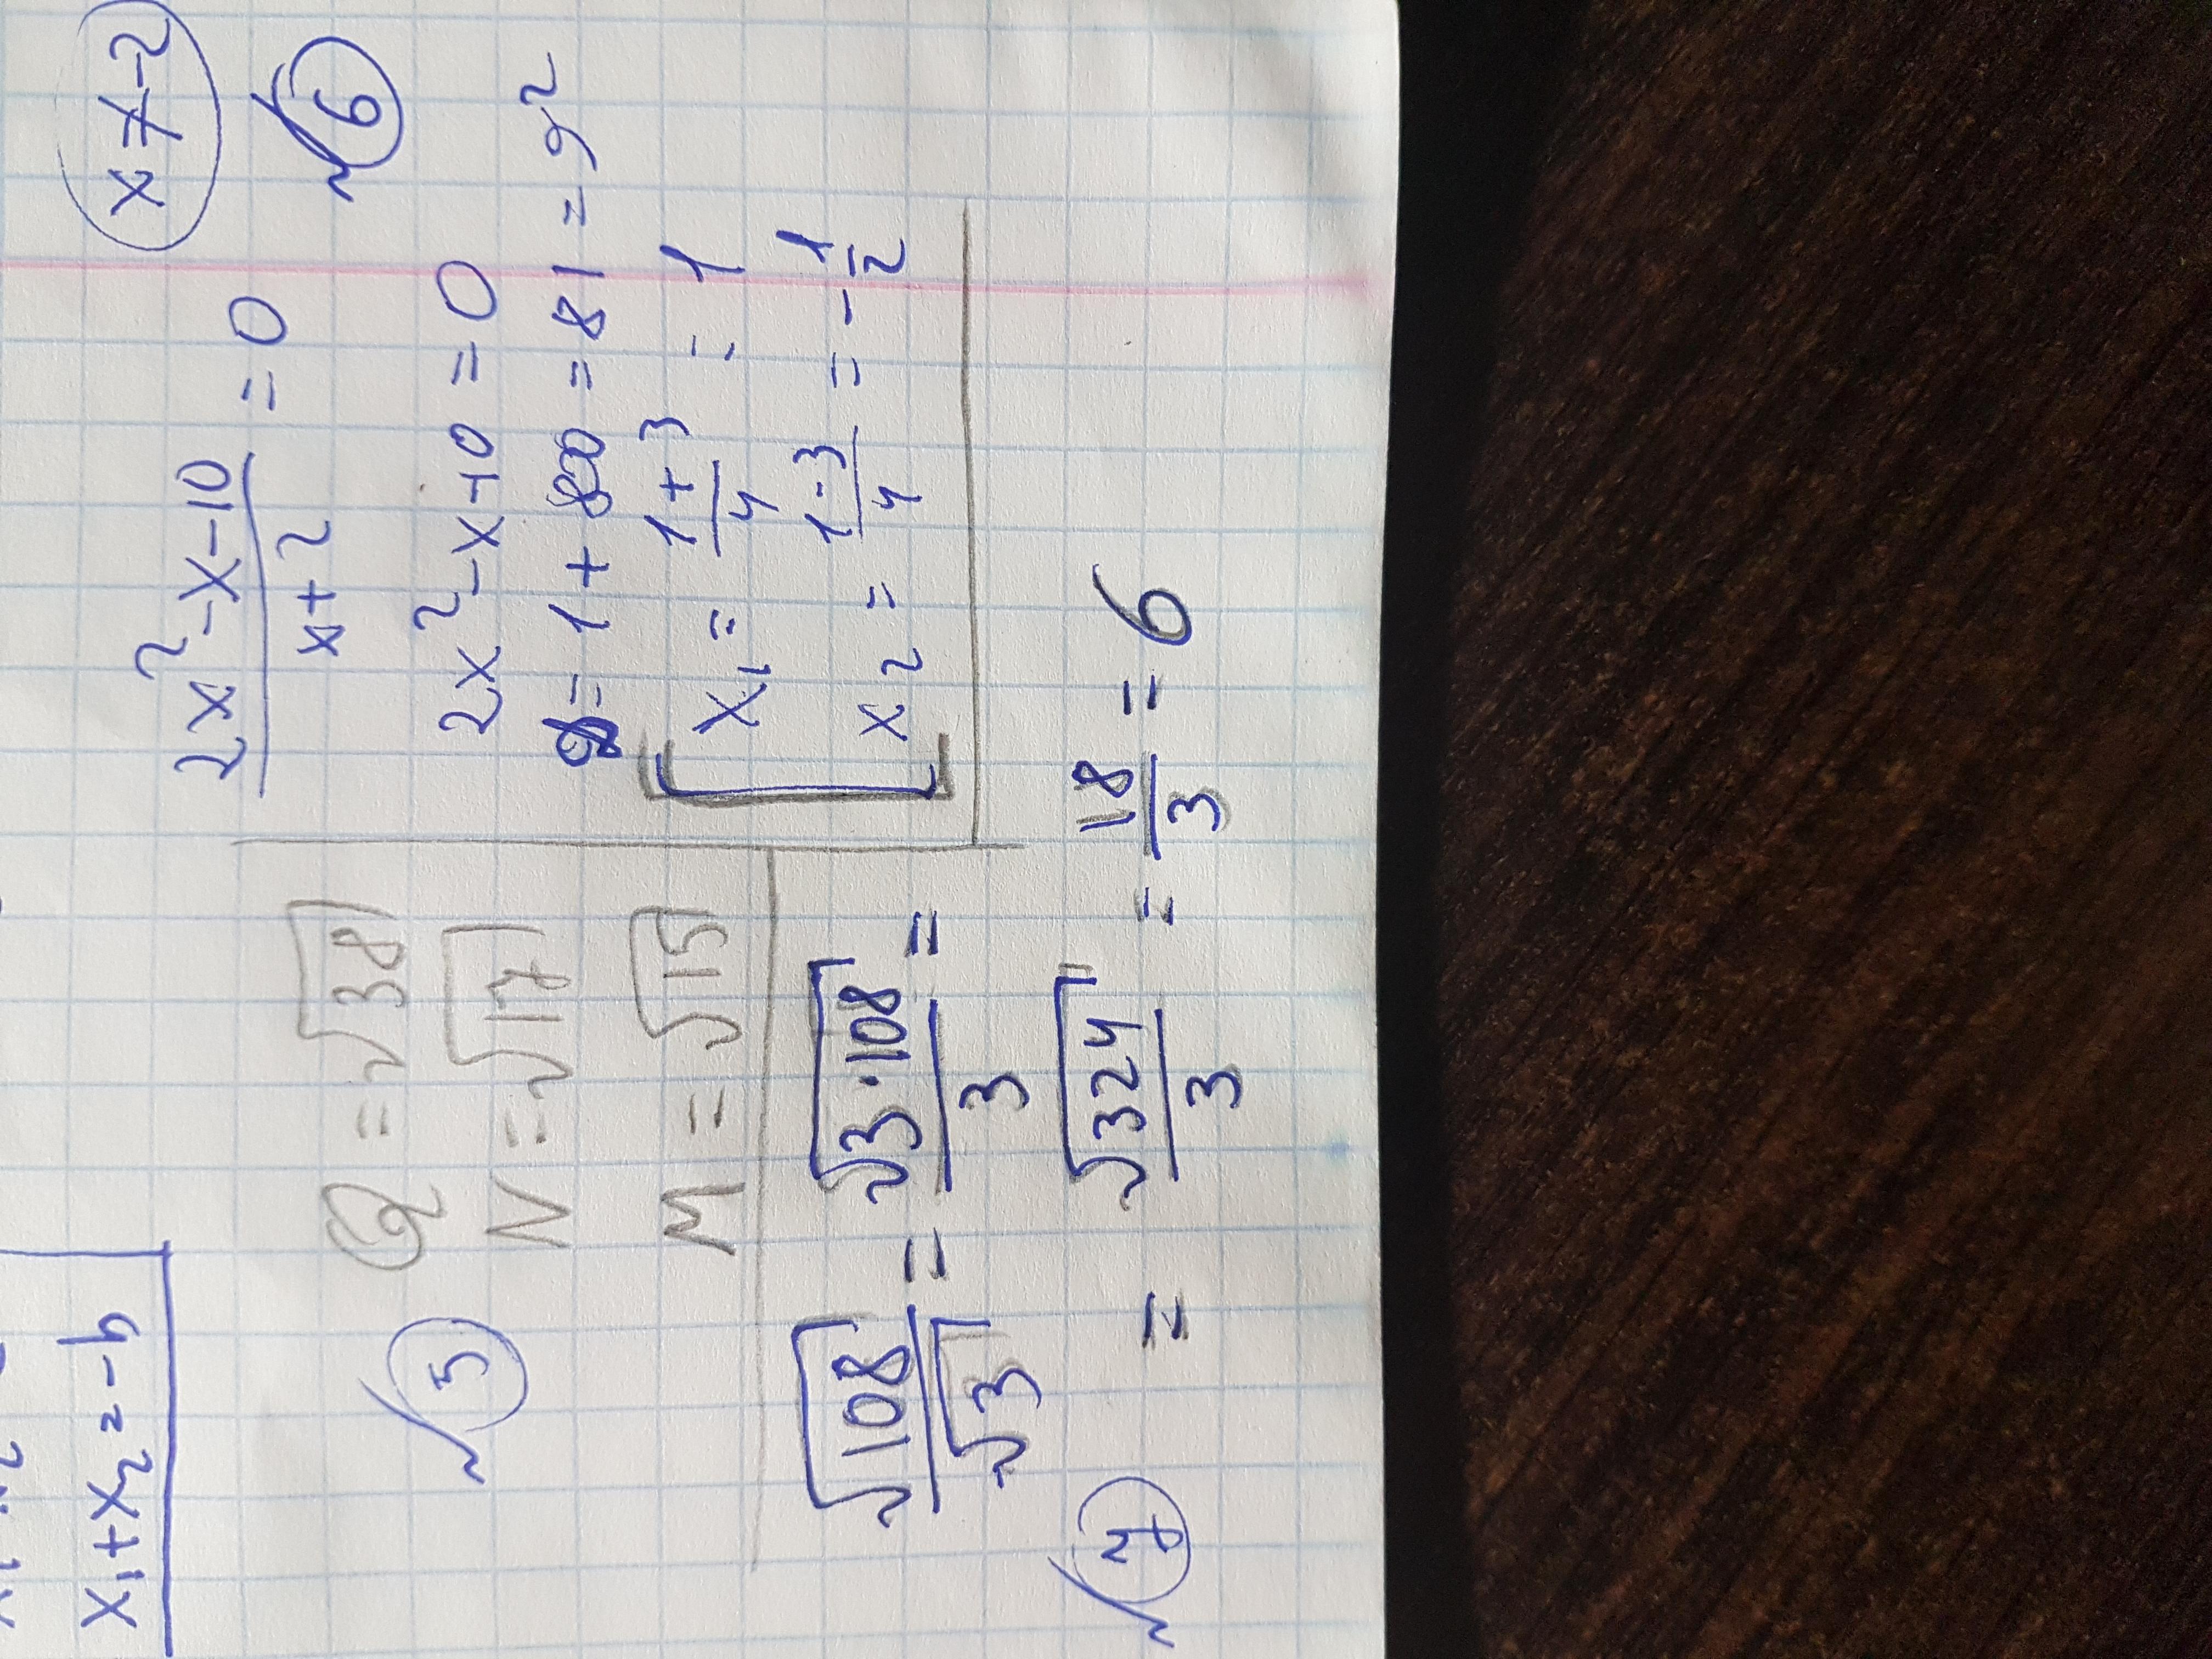 x₁+x₂=-b
√5
Q=√38
N=√17
M=√15
x≠-2
√6
(2x²-x-10)/(x+2) = 0
2x²-x-10=0
= 1 + 80 = 81 = 9²
x₁ = (1+3)/4 = 1
x₂ = (1-3)/4 = -1/2
√7
√108/√3 = √(3·108)/3 =
= √324/3 = 18/3 = 6